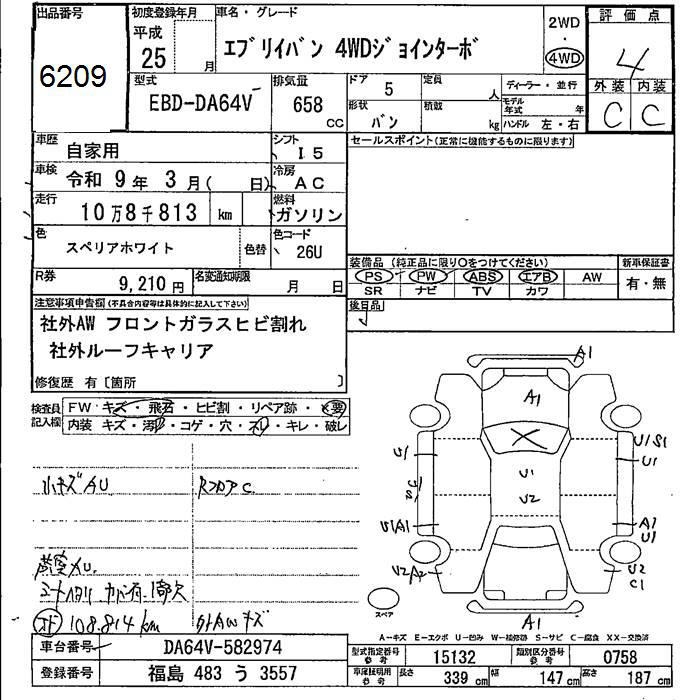 出品番号
6209
初度登録年月
平成
25 月
車名・グレード
エブリイバン 4WDジョインターボ
2WD
・
4WD
評価点
4
外装 内装
C C
型式
EBD-DA64V
排気量
658
CC
ドア 5
定員 人
形状 バン
積載 kg
ディーラー・並行
モデル年式 年
ハンドル 左・右
車歴 自家用
シフト I5
車検 令和 9年 3月( 日)
冷房 AC
走行 10万8千813 km
燃料 ガソリン
色 スペリアホワイト
色替
色コード 26U
R券 9,210円
名変通知期限 月 日
セールスポイント(正常に機能するものに限ります)
装備品(純正品に限り○をつけてください)
PS PW ABS エアB AW
SR ナビ TV カワ
新車保証書
有・無
後日品
注意事項申告欄(不具合内容等は具体的に記入して下さい)
社外AW フロントガラスヒビ割れ
社外ルーフキャリア
修復歴 有〔箇所 〕
検査員記入欄
FW・キズ・飛石・ヒビ割・リペア跡・×要
内装 キズ・汚れ・コゲ・穴・スレ・キレ・破レ
小キズAU
RフロアC
荷室AU
シートヘタリ
オド 108,814 km
外AWキズ
A1
A1
U1
U1 S1
U1
U1
U2
U2
U1A1
A1
U1
U2A2
U2
C1
A1
スペア
A-キズ E-エクボ U-凹み W-補修跡 S-サビ C-腐食 XX-交換済
車台番号 DA64V-582974
登録番号 福島 483 う 3557
型式指定番号 参考 15132
類別区分番号 参考 0758
車庫証明用 参考 長さ 339 cm 幅 147 cm 高さ 187 cm